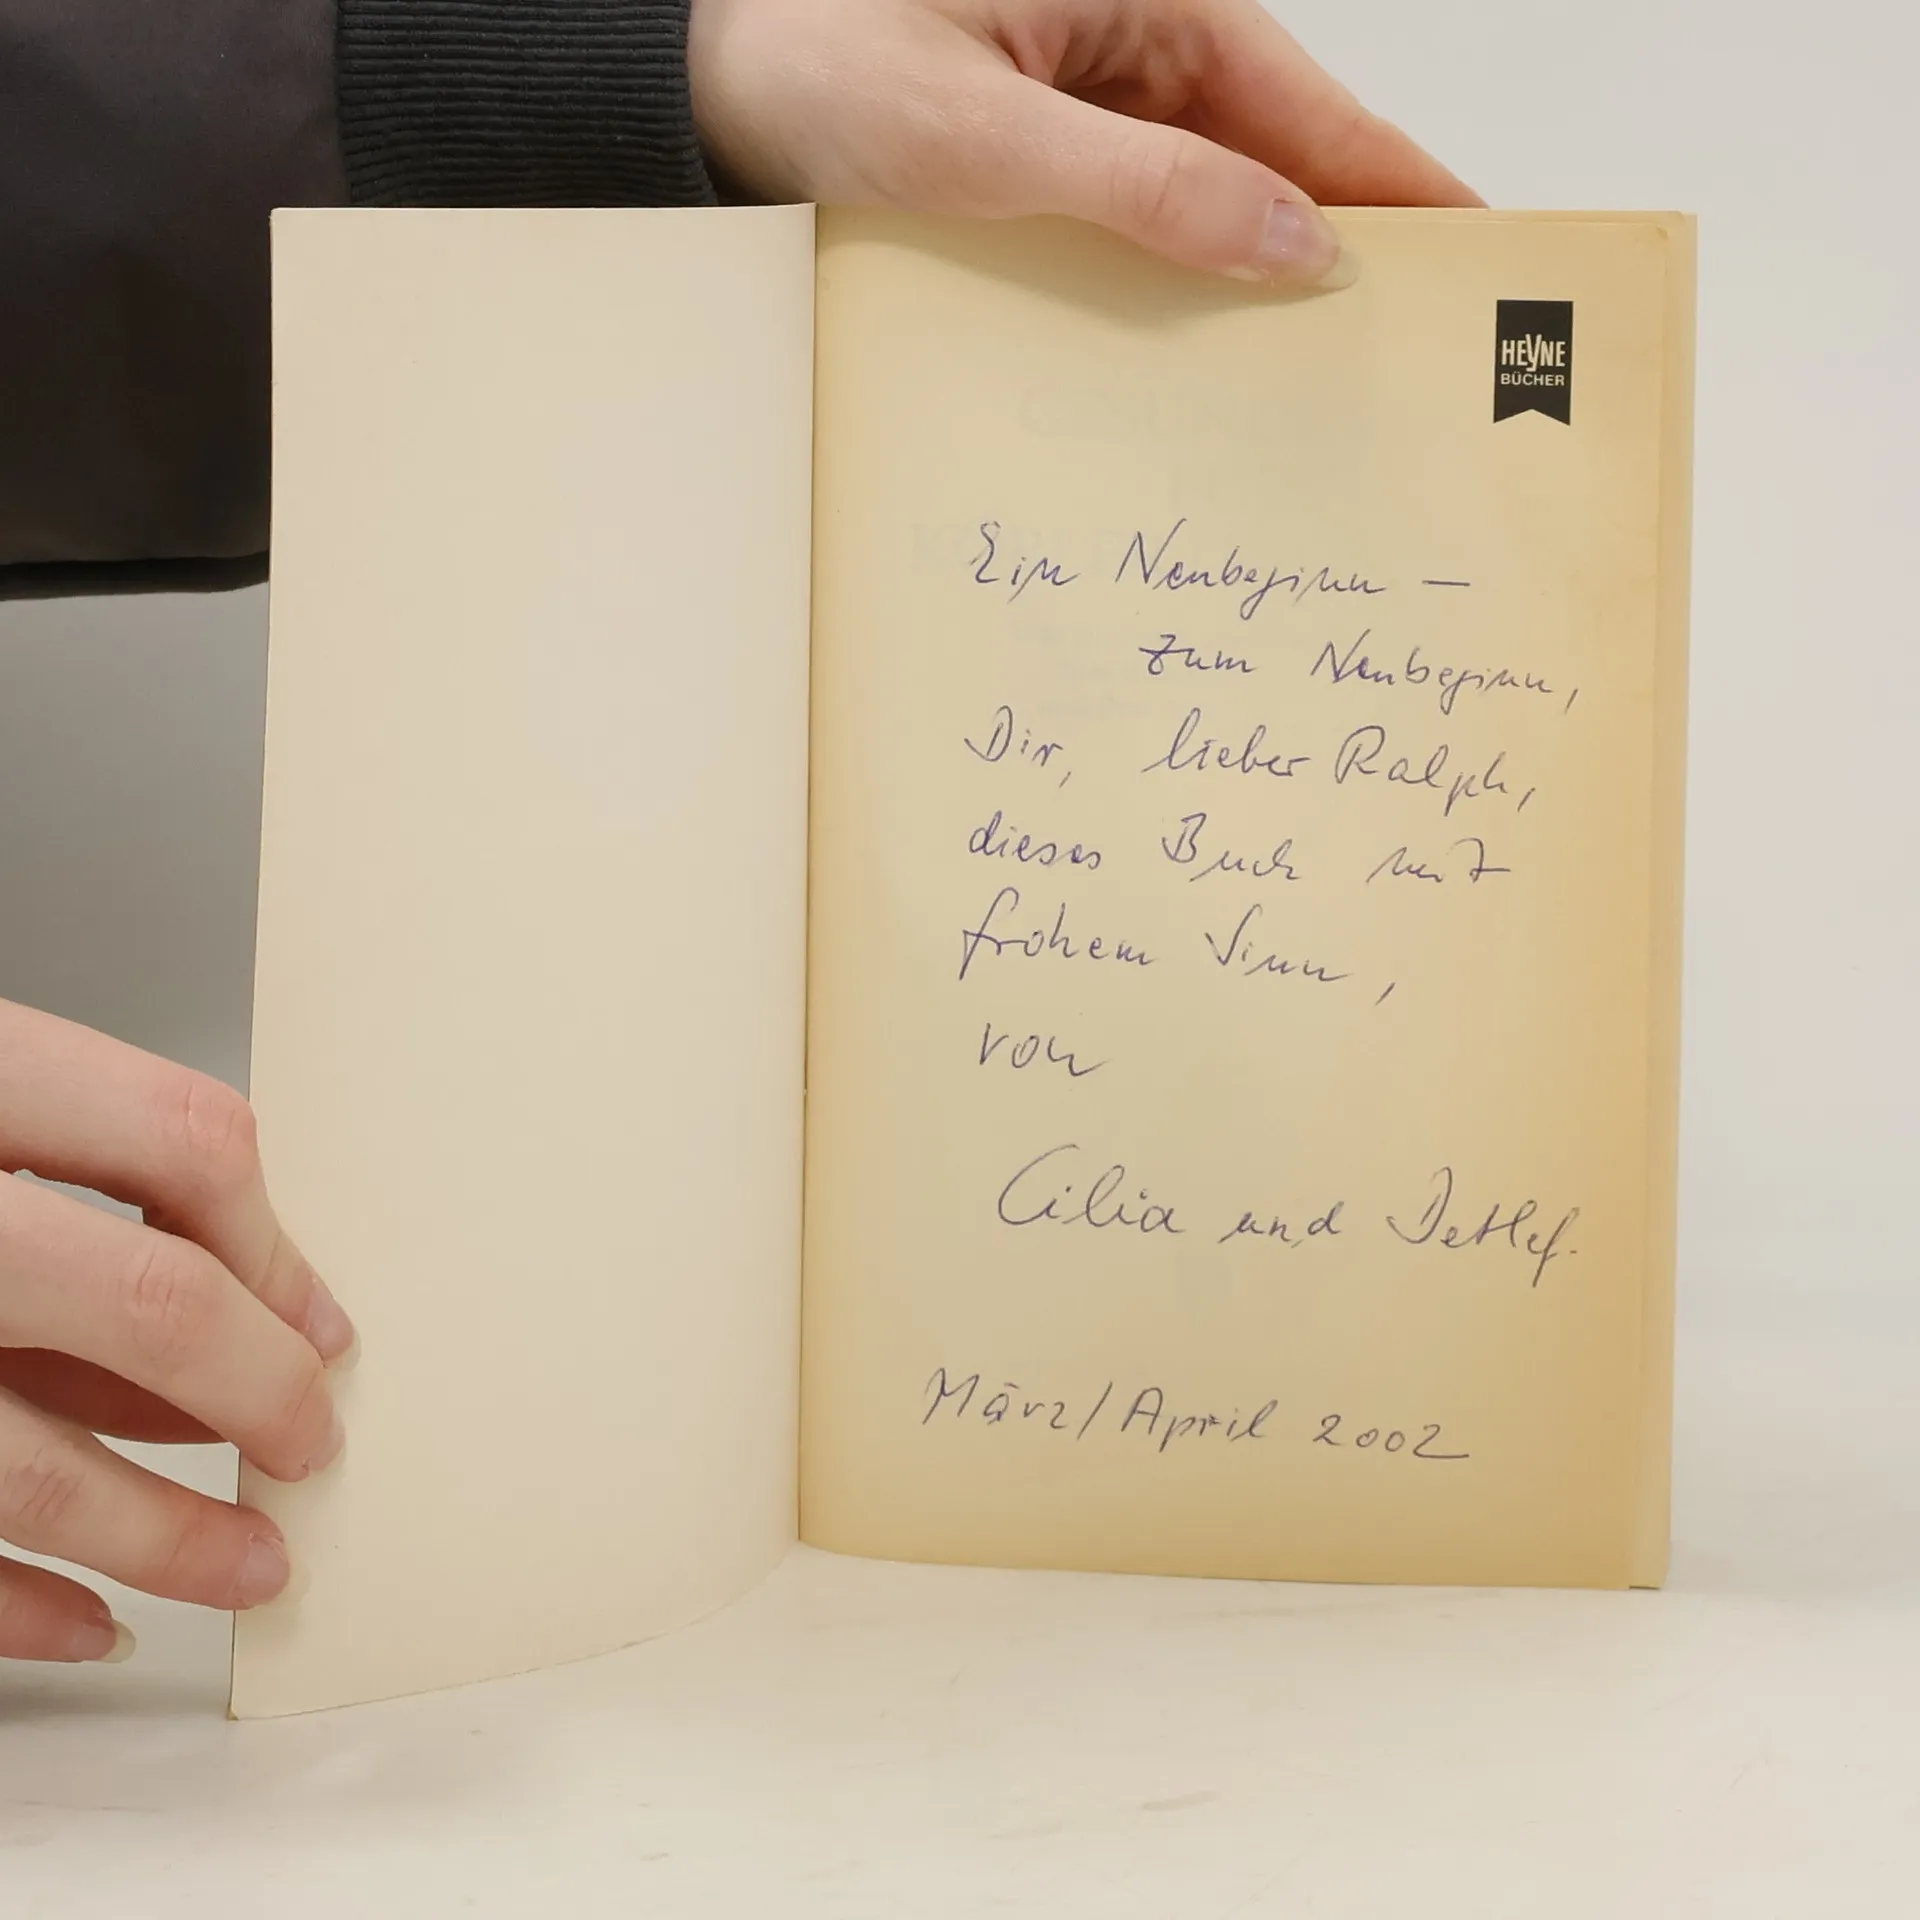 HEYNE
BÜCHER
Ein Neubeginn —
zum Neubeginn,
Dir, lieber Ralph,
dieses Buch mit
frohem Sinn,
von
Cilia und Detlef.
März/April 2002